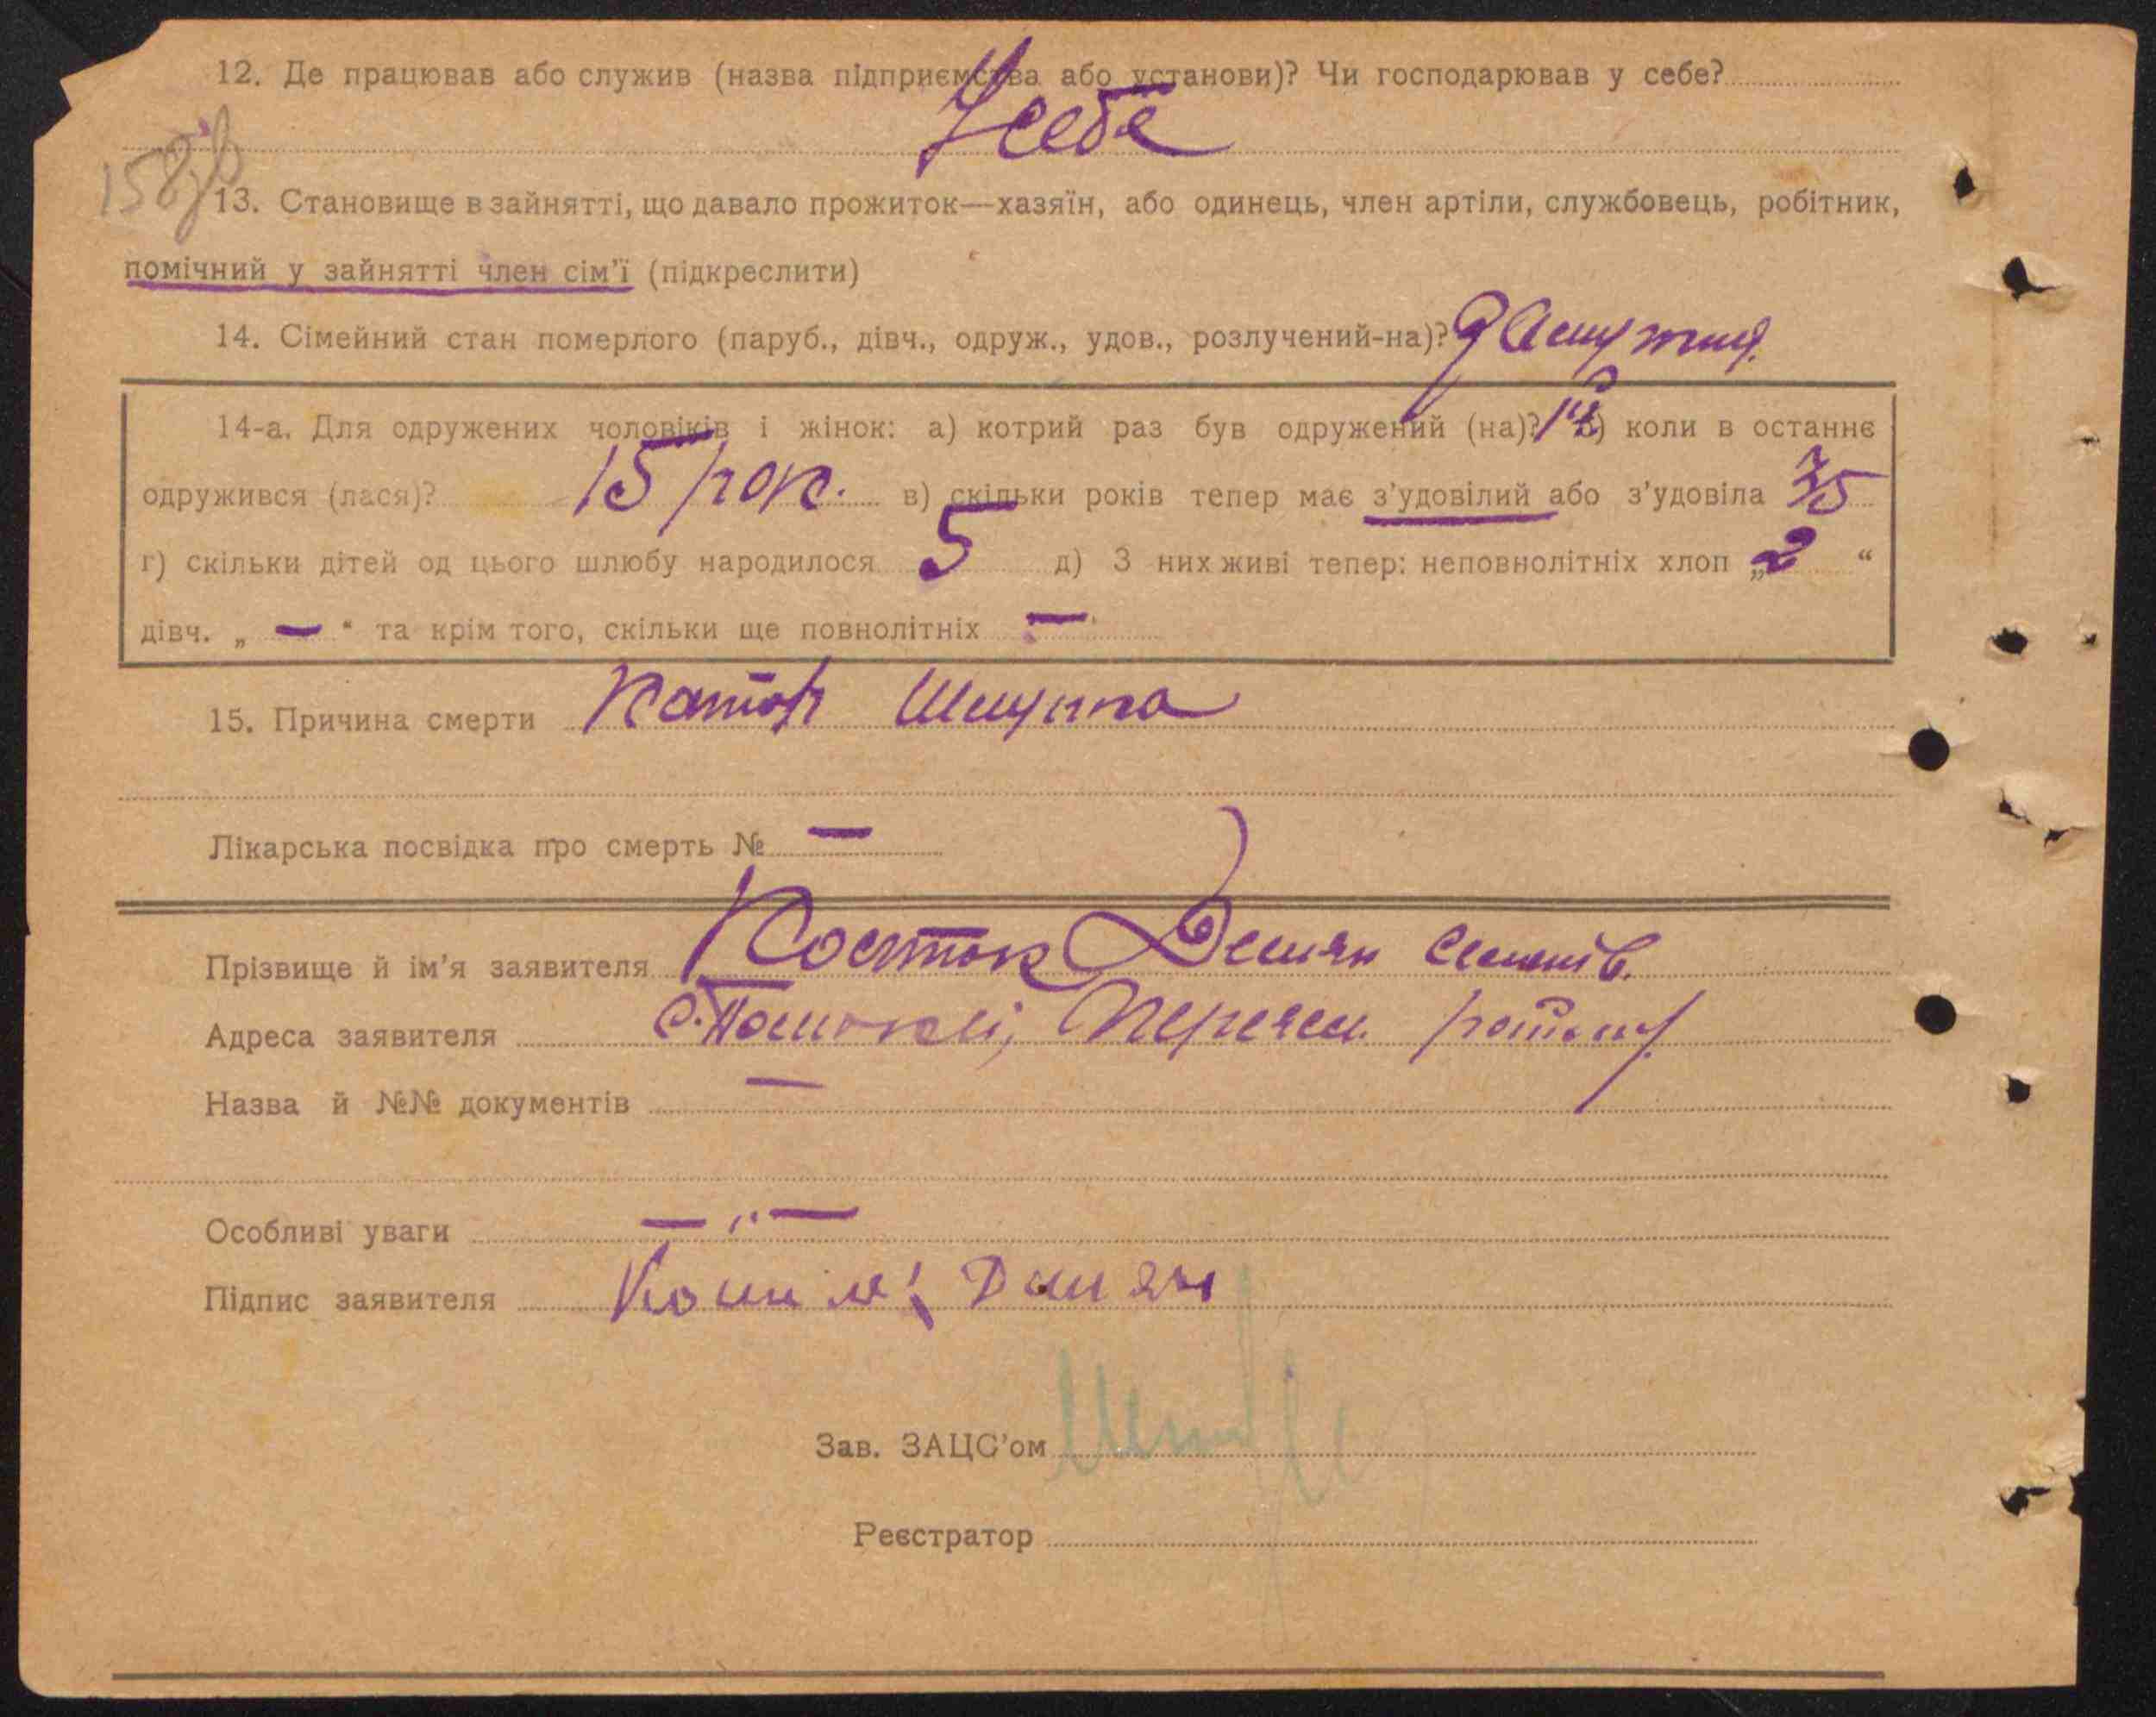 12. Де працював або служив (назва підприємства або установи)? Чи господарював у себе?
У себе
158
13. Становище в зайнятті, що давало прожиток—хазяїн, або одинець, член артіли, службовець, робітник,
помічний у зайнятті член сім'ї (підкреслити)
14. Сімейний стан померлого (паруб., дівч., одруж., удов., розлучений-на)? Замужня
14-а. Для одружених чоловіків і жінок: а) котрий раз був одружений (на)? 1й б) коли в останнє
одружився (лася)? 15 рок. в) скільки років тепер має з'удовілий або з'удовіла 35
г) скільки дітей од цього шлюбу народилося 5 д) З них живі тепер: неповнолітніх хлоп „ 2 “
дівч. „ — “ та крім того, скільки ще повнолітніх —
15. Причина смерти Катар Шлунка
Лікарська посвідка про смерть № —
Прізвище й ім'я заявителя Демян
Адреса заявителя с. Переясл. району
Назва й №№ документів —
Особливі уваги — „ —
Підпис заявителя Демян
Зав. ЗАЦС'ом
Реєстратор